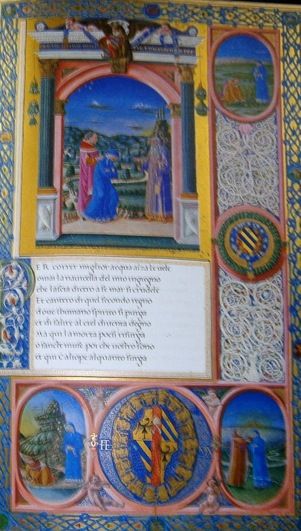 ER correr miglior acqua alza le vele
omai la navicella del mio ingegno
che lascia dietro a se mar si crudele
Et cantero di quel secondo regno
dove l humano spirito si purga
et di salire al ciel diventa degno
Ma qui la morta poesi
o sancte muse poi che vostro sono
et qui Caliope alquanto surga
FE